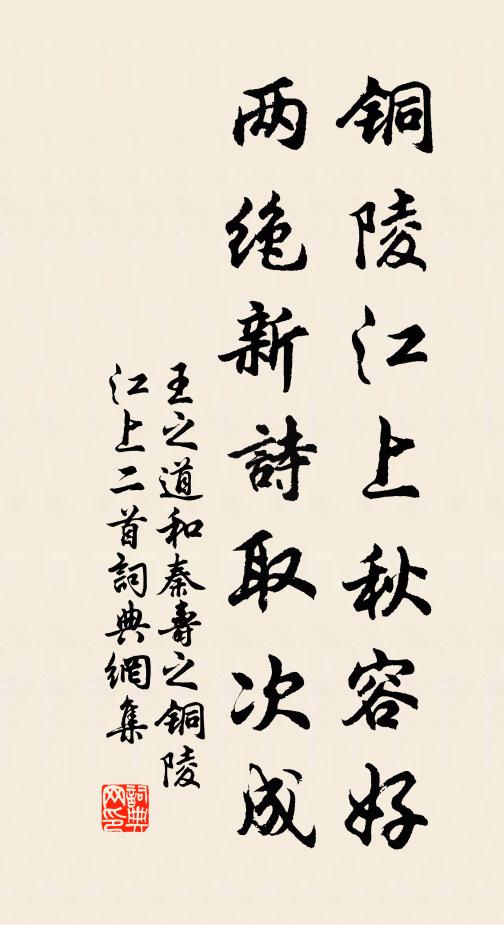 銅陵江上秋容好
两绝新詩取次成
王之道和秦壽之铜陵
江上二首詞典網集
詞典网印